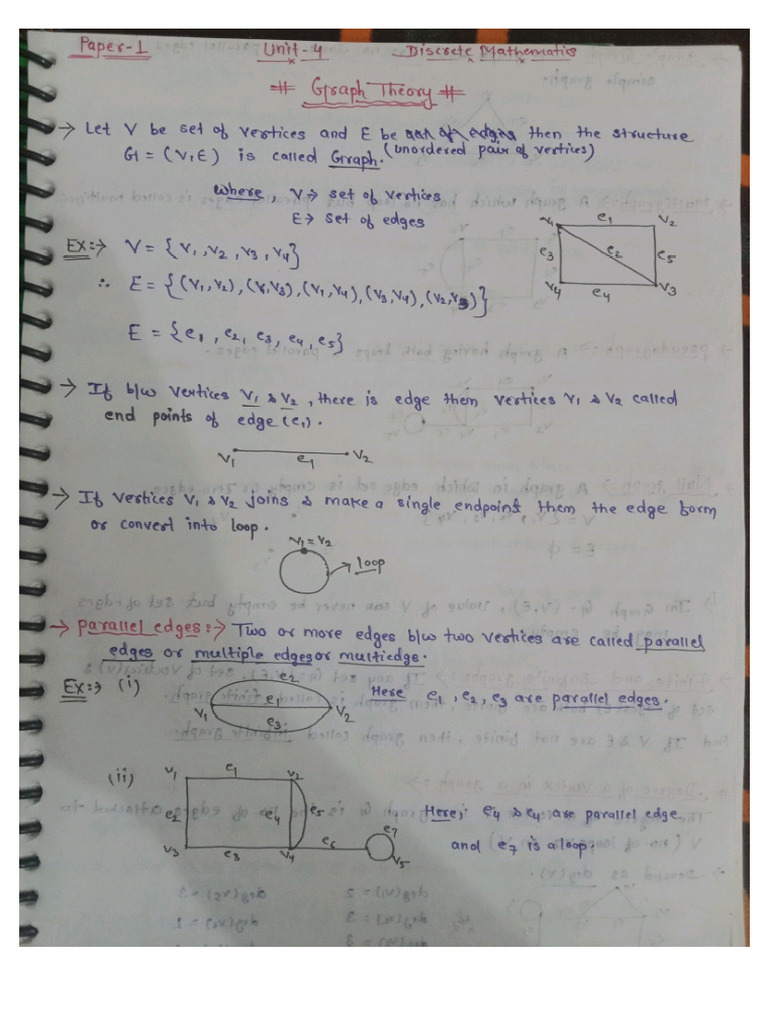 Paper-1 Unit-4 Discrete Mathematics
# Graph Theory #
→ Let V be set of vertices and E be set of edges then the structure
G = (V, E) is called Graph. (unordered pair of vertices)
where, V → set of vertices
E → set of edges
Ex:→ V = {V1, V2, V3, V4}
∴ E = {(V1, V2), (V1, V3), (V1, V4), (V3, V4), (V2, V3)}
E = {e1, e2, e3, e4, e5}
V1 e1 V2
e3 e2 e5
V4 e4 V3
→ If b/w vertices V1 & V2, there is edge then vertices V1 & V2 called
end points of edge (e1).
V1 e1 V2
→ If vertices V1 & V2 joins & make a single endpoint them the edge form
or convert into loop.
V1 = V2
→ loop
→ Parallel edges:→ Two or more edges b/w two vertices are called parallel
edges or multiple edges or multiedge.
Ex:→ (i) e2
V1 e1 V2
e3
Here e1, e2, e3 are parallel edges.
(ii) V1 e1 V2
e2 e4 e5
V3 e3 V4 e6 e7 V5
Here, e4 & e4 are parallel edge
and e7 is a loop.